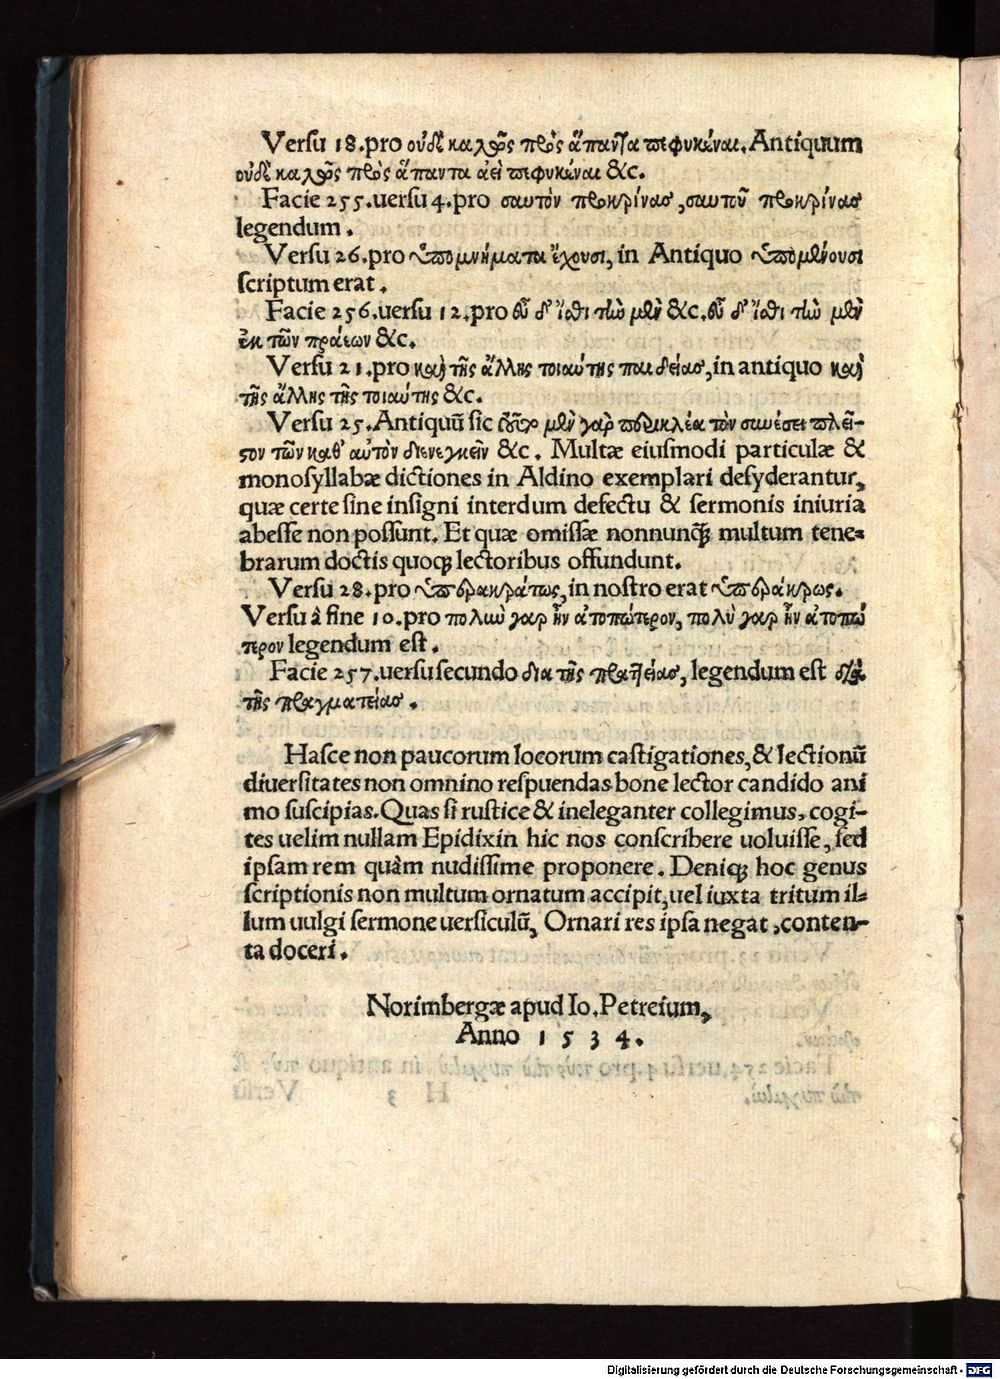 Verſu 18. pro οὐδὲ καλῶς πρὸς ἅπαντα πεφυκέναι. Antiquum
οὐδὲ καλῶς πρὸς ἅπαντα ἀεὶ πεφυκέναι &c.
Facie 255. uerſu 4. pro σαυτὸν προκρίνας, σαυτοῦ προκρίνας
legendum.
Verſu 26. pro ὑπομνήματα ἔχουσι, in Antiquo ὑπομένουσι
ſcriptum erat.
Facie 256. uerſu 12. pro εὖ δ' ἴσθι τὼ μὲν &c. εὖ δ' ἴσθι τὼ μὲν
ἐκ τῶν πράεων &c.
Verſu 21. pro καὶ τῆς ἄλλης τοιαύτης παιδείας, in antiquo καὶ
τῆς ἄλλης τῆς τοιαύτης &c.
Verſu 25. Antiquū ſic μὲν γὰρ περικλέα τὸν συνέσει πλεῖ-
στον τῶν καθ' αὐτὸν διενεγκεῖν &c. Multæ eiuſmodi particulæ &
monoſyllabæ dictiones in Aldino exemplari deſyderantur,
quæ certe ſine inſigni interdum defectu & ſermonis iniuria
abeſſe non poſſunt. Et quæ omiſſæ nonnunꝗ̃ multum tene=
brarum doctis quoqꝫ lectoribus offundunt.
Verſu 28. pro ὑπερακράτως, in noſtro erat ὑπεράκρως.
Verſu à fine 10. pro πολλὺ γαρ ἦν ἀτοπώτερον, πολὺ γαρ ἦν ἀτοπώ
τερον legendum eſt.
Facie 257. uerſu ſecundo δια τῆς πρατείας, legendum eſt διὰ
τῆς πραγματείας.
Haſce non paucorum locorum caſtigationes, & lectionū
diuerſitates non omnino reſpuendas bone lector candido ani
mo ſuſcipias. Quas ſi ruſtice & ineleganter collegimus, cogi-
tes uelim nullam Epidixin hic nos conſcribere uoluiſſe, ſed
ipſam rem quàm nudiſſime proponere. Deniqꝫ hoc genus
ſcriptionis non multum ornatum accipit, uel iuxta tritum il=
lum uulgi ſermone uerſiculū, Ornari res ipſa negat, conten-
ta doceri.
Norimbergæ apud Io. Petreium,
Anno 1534.
Digitalisierung gefördert durch die Deutsche Forschungsgemeinschaft - DFG